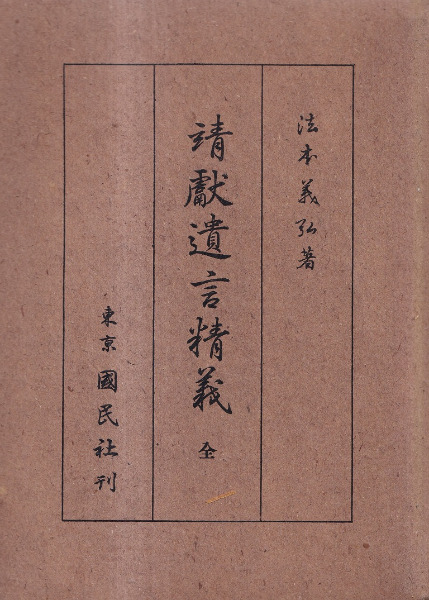 法本義弘著
靖獻遺言精義 全
東京 國民社刊